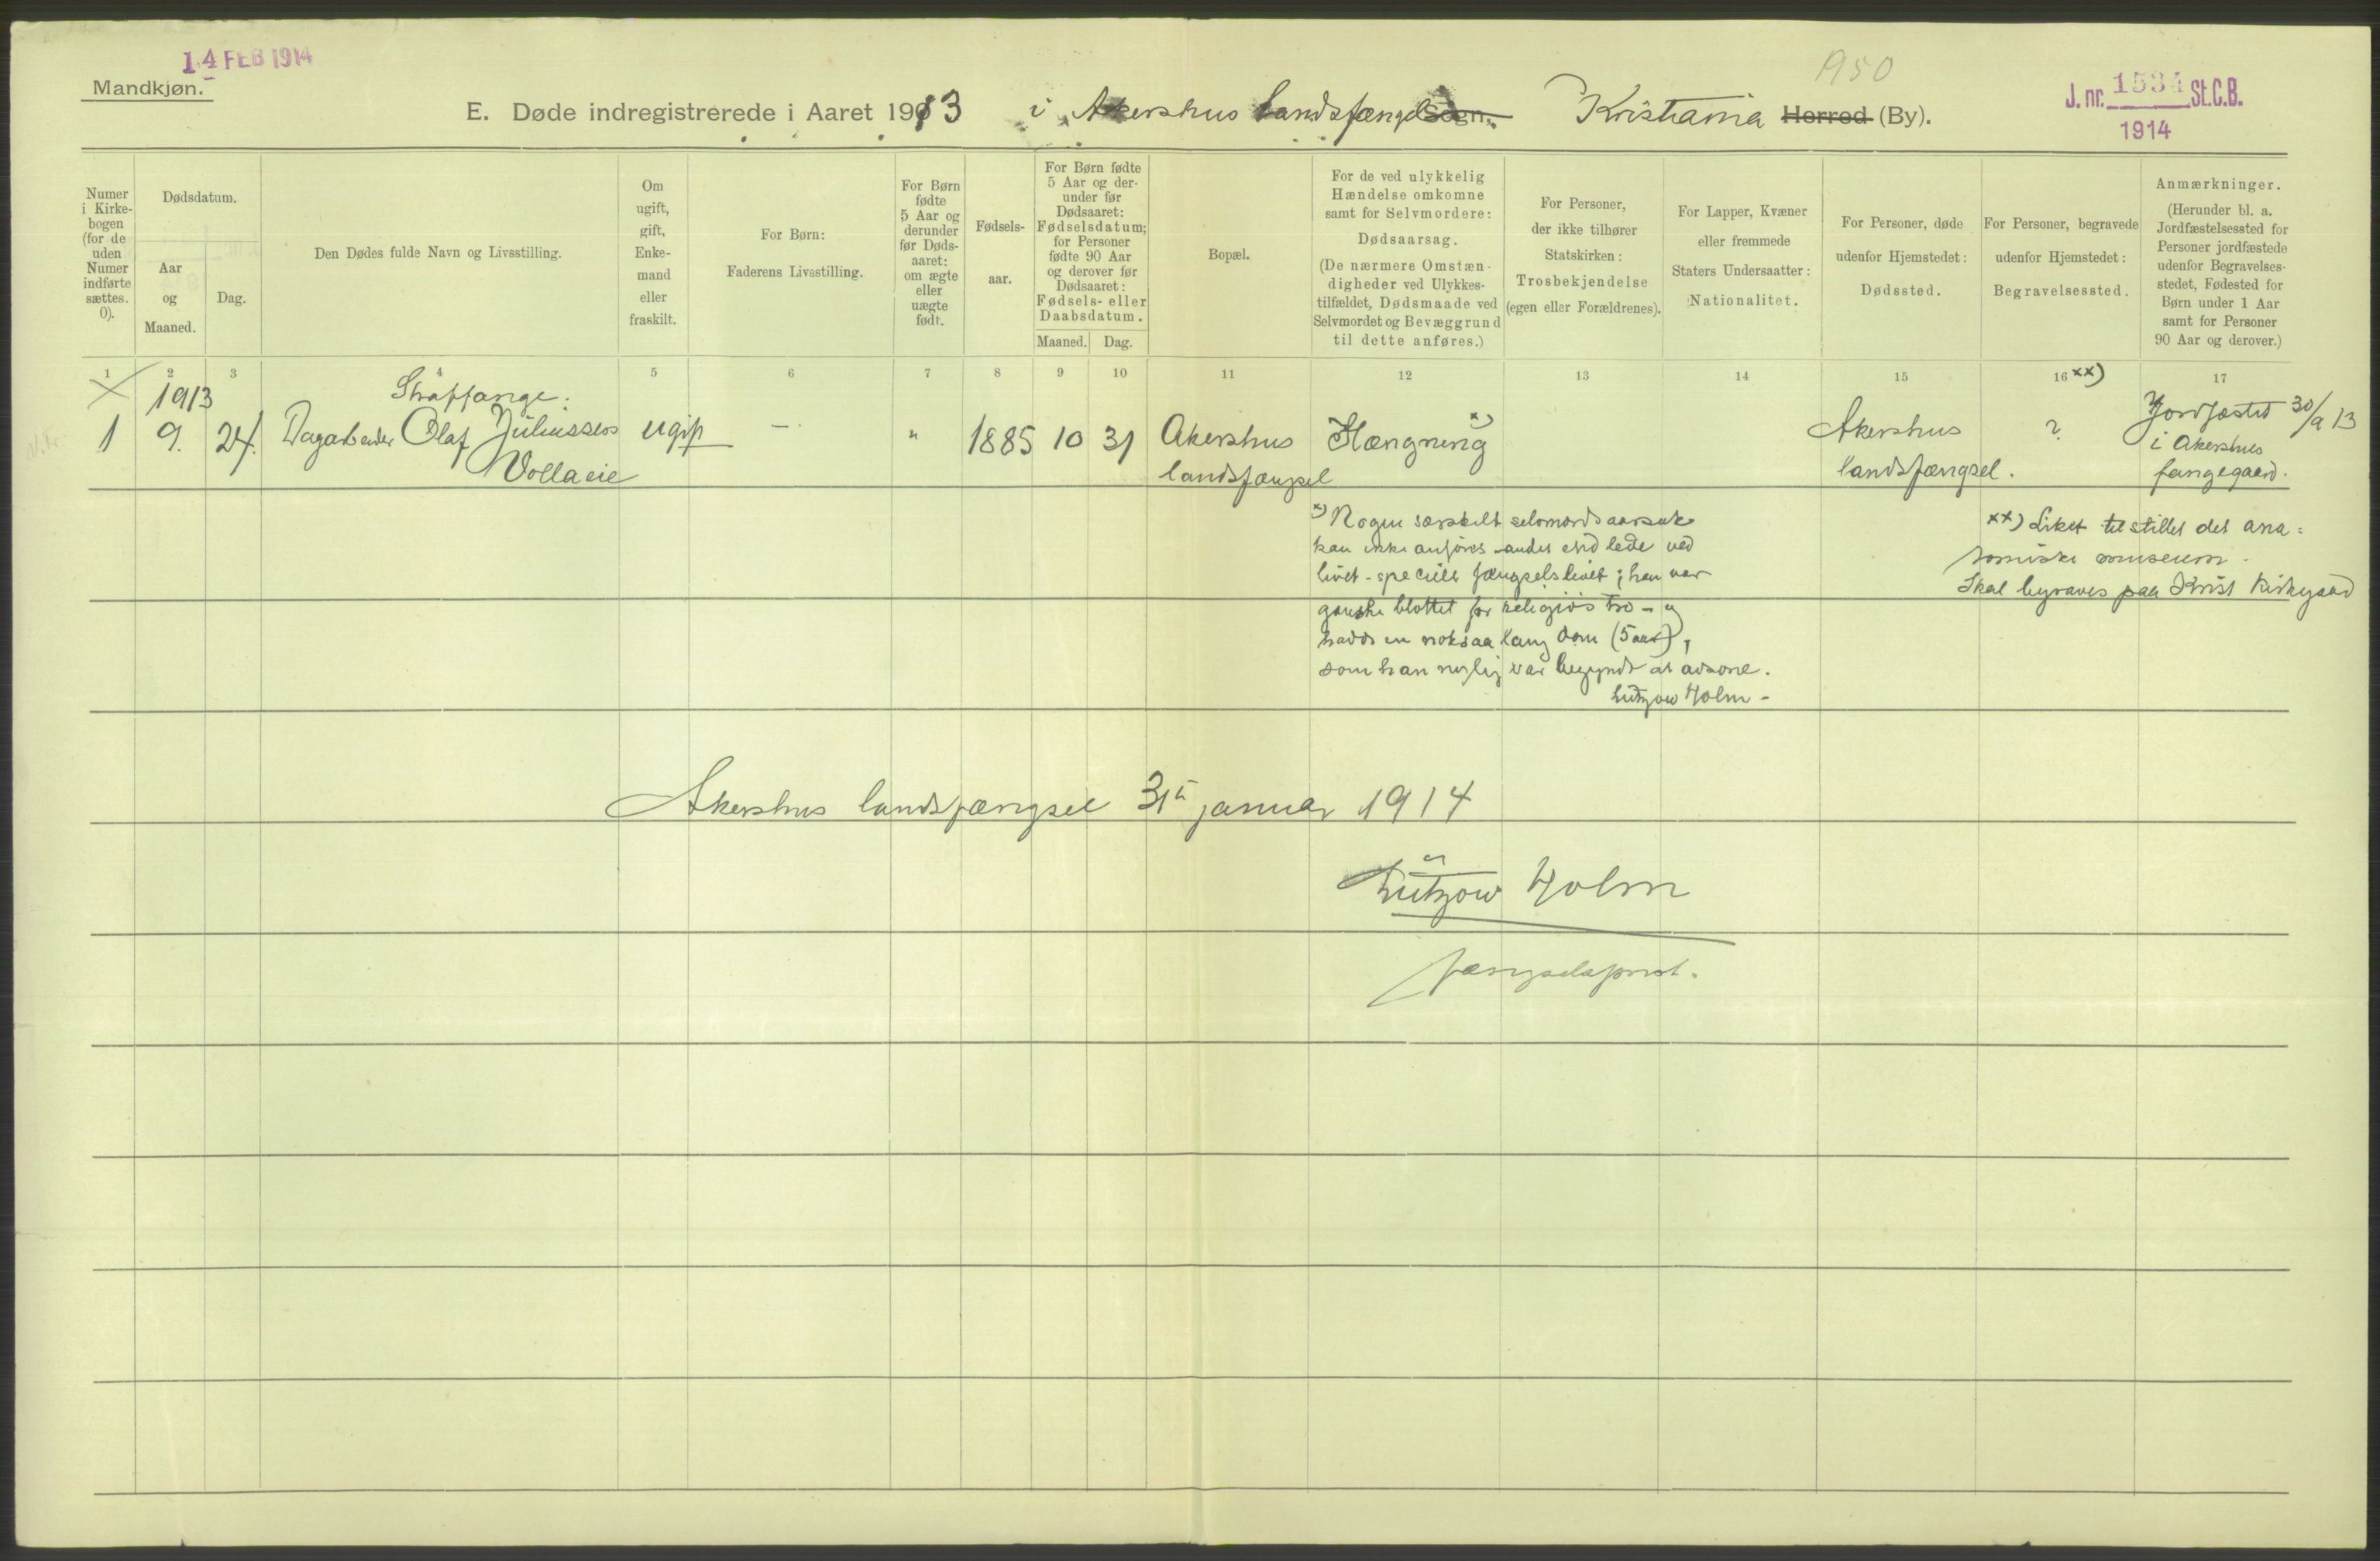 14 FEB 1914
Mandkjøn.
E. Døde indregistrerede i Aaret 1913 i Akershus landsfængsel Sogn, Kristiania Herred (By).
1950
J. nr. 1534 St.C.B.
1914
Numer i Kirke-bogen (for de uden Numer indførte sættes. 0).
Dødsdatum.
Aar og Maaned.
Dag.
Den Dødes fulde Navn og Livsstilling.
Om ugift, gift, Enke-mand eller fraskilt.
For Børn:
Faderens Livsstilling.
For Børn fødte 5 Aar og derunder før Døds-aaret: om ægte eller uægte født.
Fødsels-aar.
For Børn fødte 5 Aar og der-under før Dødsaaret: Fødselsdatum; for Personer fødte 90 Aar og derover før Dødsaaret: Fødsels- eller Daabsdatum.
Maaned.
Dag.
Bopæl.
For de ved ulykkelig Hændelse omkomne samt for Selvmordere: Dødsaarsag. (De nærmere Omstæn-digheder ved Ulykkes-tilfældet, Dødsmaade ved Selvmordet og Bevæggrund til dette anføres.)
For Personer, der ikke tilhører Statskirken: Trosbekjendelse (egen eller Forældrenes).
For Lapper, Kvæner eller fremmede Staters Undersaatter: Nationalitet.
For Personer, døde udenfor Hjemstedet: Dødssted.
For Personer, begravede udenfor Hjemstedet: Begravelsessted.
Anmærkninger. (Herunder bl. a. Jordfæstelsessted for Personer jordfæstede udenfor Begravelses-stedet, Fødested for Børn under 1 Aar samt for Personer 90 Aar og derover.)
1 2 3 4 5 6 7 8 9 10 11 12 13 14 15 16 xx) 17
1913 Straffange:
1 9. 24. Olaf Juliussen ugift — " 1885 10 31 Akershus Hængning x) Akershus ? Jordfæstet 30/9 13
Vollaeie landsfængsel landsfængsel. i Akershus
fangegaard.
x) Nogen særskilt selvmordsaarsak
kan ikke anføres andet end lede ved
livet - specielt fængselslivet; han var
ganske blottet for religiøs tro - og
hadde en noksaa lang dom (5 aar),
som han nylig var begyndt at avsone.
Lützow Holm -
xx) Liket tilstillet det ana=
tomiske museum -
Skal begraves paa Krist Kirkegaard
Akershus landsfængsel 31te januar 1914
Lützow Holm
fængselsprest.